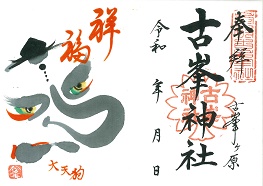 奉拝
古峯ヶ原
古峯神社
令和 年 月 日
祥福
大天狗